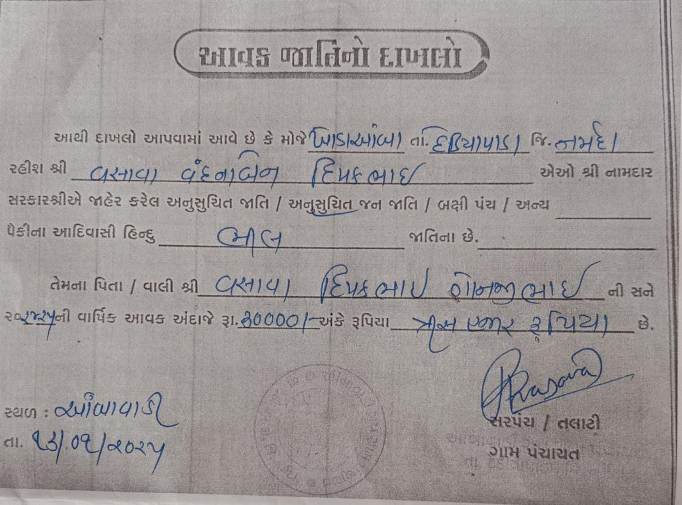 આવક જાતિનો દાખલો
આથી દાખલો આપવામાં આવે છે કે મોજે ખાડાઆંબા તા. દેડિયાપાડા જિ. નર્મદા
રહીશ શ્રી વસાવા વંદનાબેન દિપકભાઈ એઓ શ્રી નામદાર
સરકારશ્રીએ જાહેર કરેલ અનુસુચિત જાતિ / અનુસુચિત જન જાતિ / બક્ષી પંચ / અન્ય
પૈકીના આદિવાસી હિન્દુ ભીલ જાતિના છે.
તેમના પિતા / વાલી શ્રી વસાવા દિપકભાઈ ની સને
ની વાર્ષિક આવક અંદાજે રૂા. 30000/- અંકે રૂપિયા ત્રીસ હજાર રૂપિયા છે.
સ્થળ : આંબાવાડી
સરપંચ / તલાટી
તા.
ગામ પંચાયત